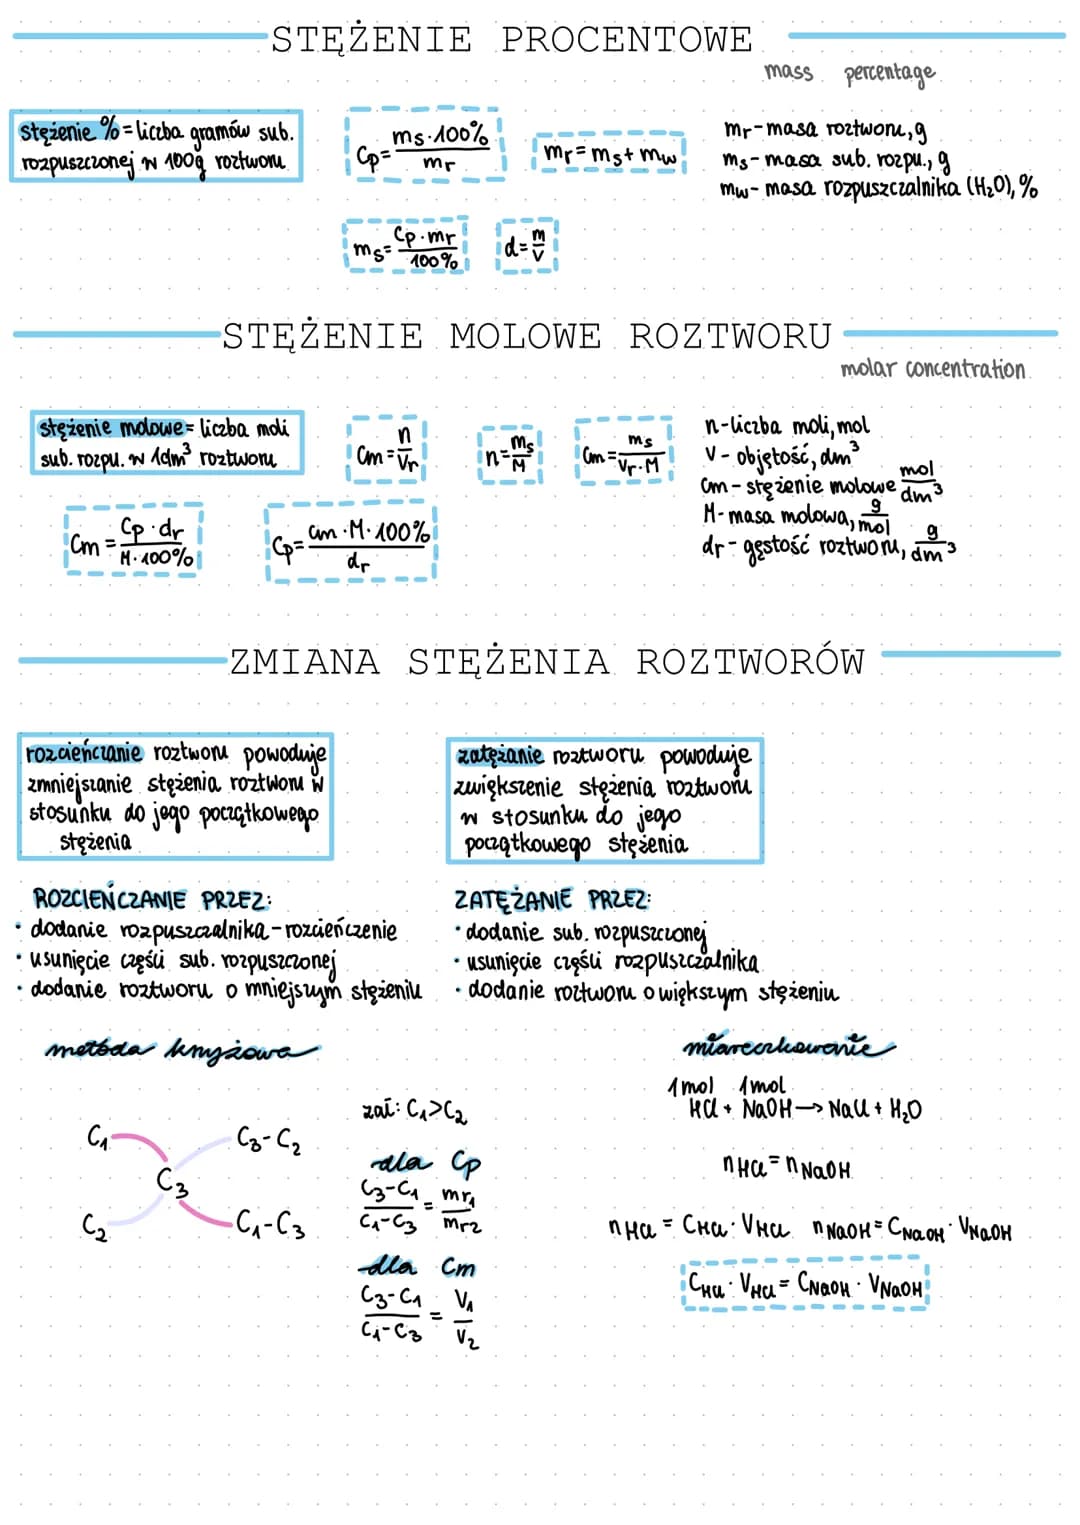 STĘŻENIE PROCENTOWE
mass percentage
stężenie % = liczba gramów sub.
rozpuszczonej w 100g roztworu
Cp = ms·100% / mr
mr = ms + mw
mr - masa roztworu, g
ms - masa sub. rozpu., g
mw - masa rozpuszczalnika (H₂O), %
ms = Cp·mr / 100%
d = m / V
STĘŻENIE MOLOWE ROZTWORU
molar concentration
stężenie molowe = liczba moli
sub. rozpu. w 1dm³ roztworu
Cm = n / Vr
n = ms / M
Cm = ms / Vr·M
n - liczba moli, mol
V - objętość, dm³
Cm - stężenie molowe mol / dm³
M - masa molowa, g / mol
dr - gęstość roztworu, g / dm³
Cm = Cp·dr / M·100%
Cp = Cm·M·100% / dr
ZMIANA STĘŻENIA ROZTWORÓW
rozcieńczanie roztworu powoduje
zmniejszanie stężenia roztworu w
stosunku do jego początkowego
stężenia
zatężanie roztworu powoduje
zwiększenie stężenia roztworu
w stosunku do jego
początkowego stężenia
ROZCIEŃCZANIE PRZEZ:
• dodanie rozpuszczalnika - rozcieńczenie
• usunięcie części sub. rozpuszczonej
• dodanie roztworu o mniejszym stężeniu
ZATĘŻANIE PRZEZ:
• dodanie sub. rozpuszczonej
• usunięcie części rozpuszczalnika
• dodanie roztworu o większym stężeniu
metoda krzyżowa
C₁ C₃-C₂
C₃
C₂ C₁-C₃
zał: C₁>C₂
dla Cp
C₃-C₁ / C₁-C₃ = mr₁ / mr₂
dla Cm
C₃-C₁ / C₁-C₃ = V₁ / V₂
miareczkowanie
1mol 1mol
HCl + NaOH → NaCl + H₂O
nHCl = nNaOH
nHCl = CHCl · VHCl nNaOH = CNaOH · VNaOH
CHCl · VHCl = CNaOH · VNaOH